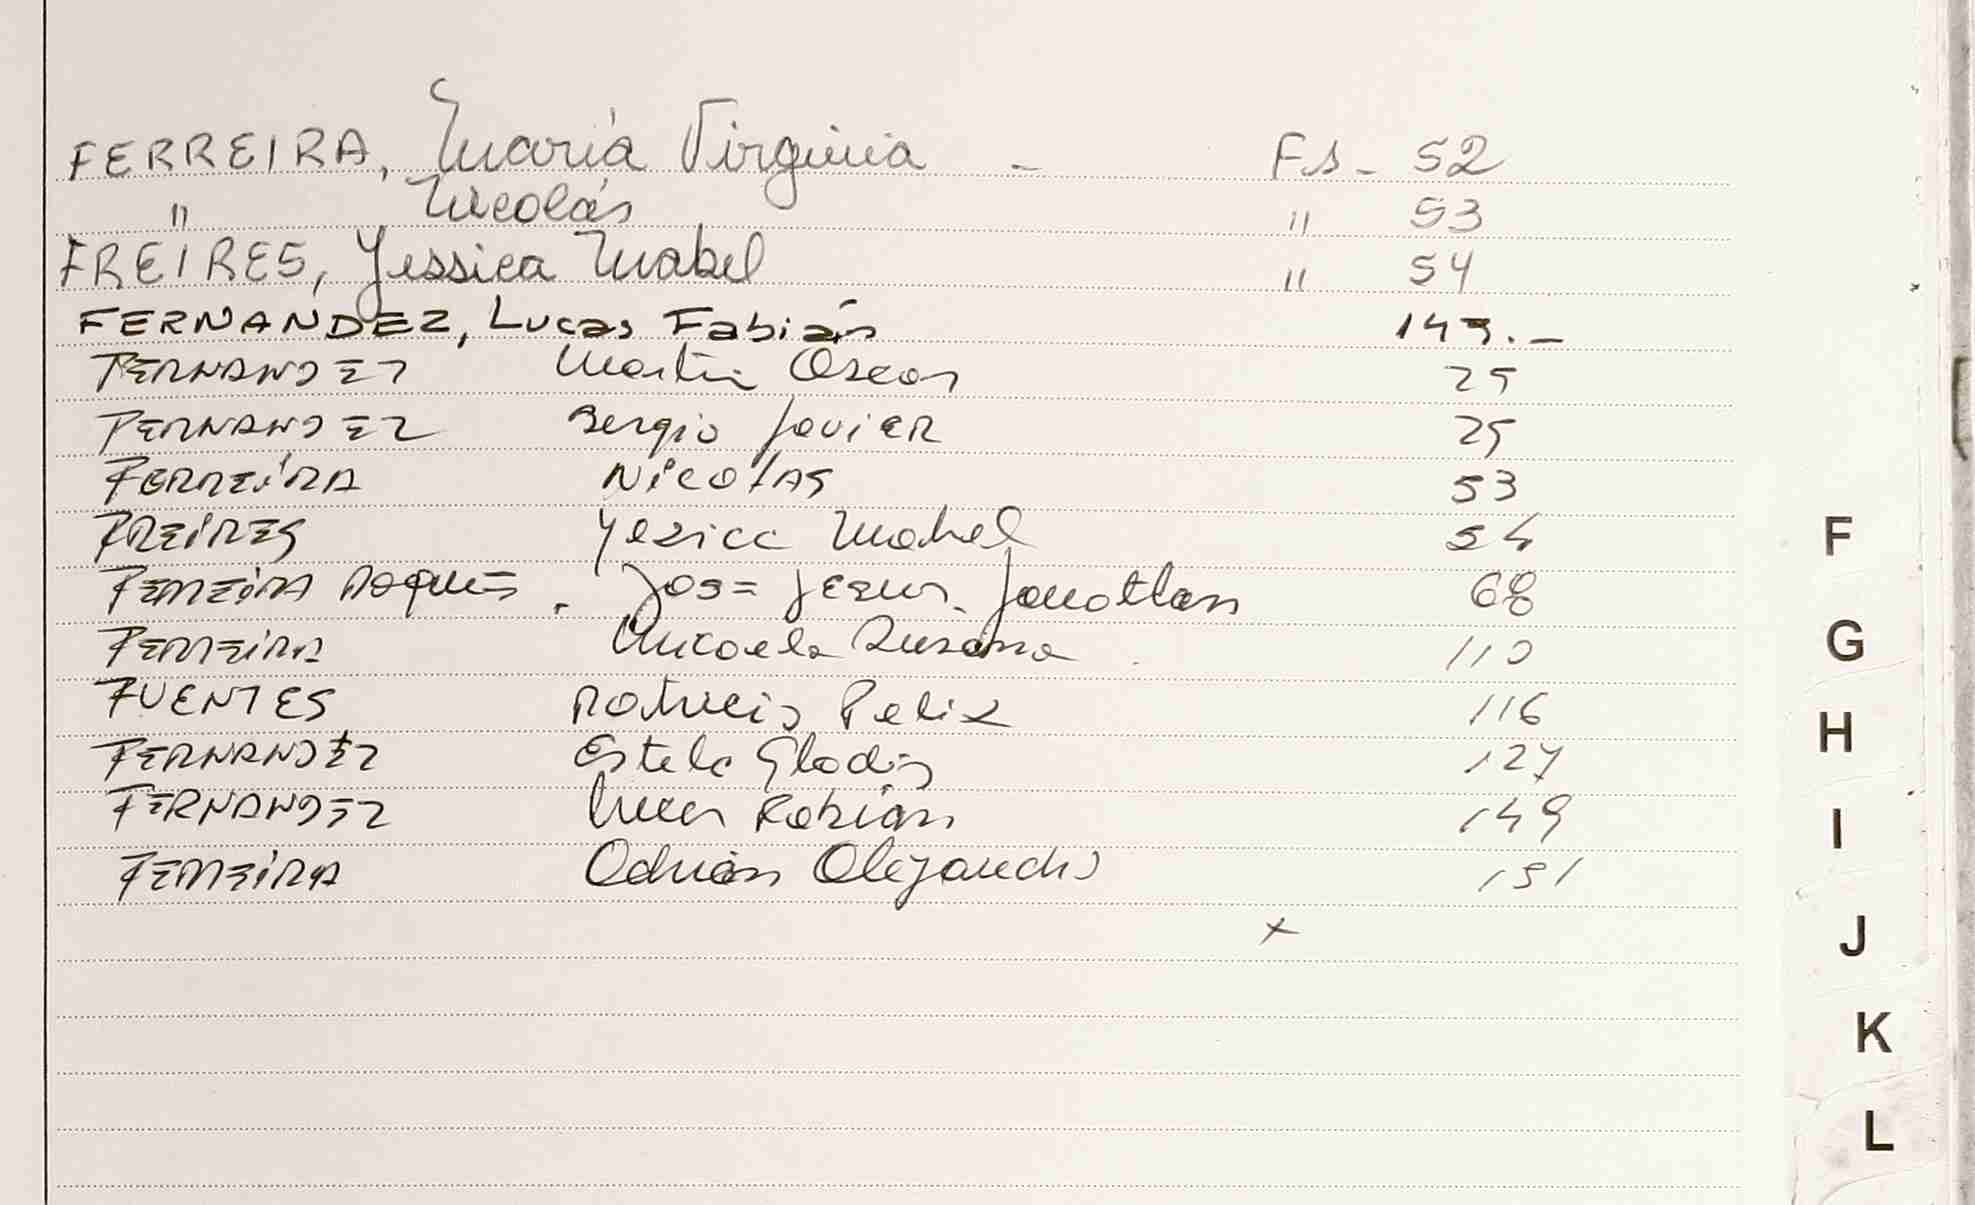 FERREIRA, María Virginia - Fs - 52
" Nicolás " 53
FREIRES, Yessica Mabel " 54
FERNANDEZ, Lucas Fabián 149.-
FERNANDEZ Martin Oscar 25
FERNANDEZ Sergio Javier 25
FERREIRA Nicolas 53
FREIRES Yesica Mabel 54
FERREIRA Roque . Jose Jesus. Jonathan 68
FERREIRA Micaela Susana 110
FUENTES Patricio Felix 116
FERNANDEZ Estela Gladis 127
FERNANDEZ Lucas Fabian 149
FERREIRA Adrian Alejandro 151
x
F
G
H
I
J
K
L